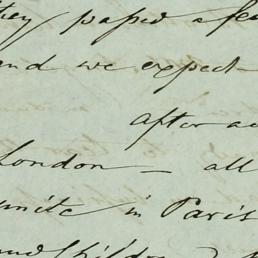 they passed a few
and we expect
after a
London — all
unite in Paris
and Children